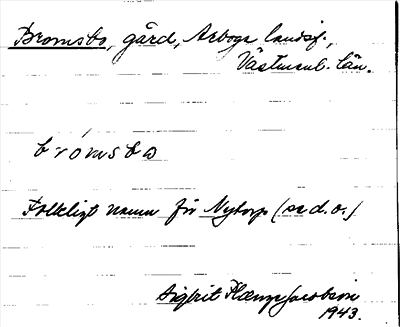 Bromsbo, gård, Arboga landsf.,
Västmanl. län.
brómsbo
Folkligt namn för Nytorp (se d.o.)
Sigbrit Plænge Jacobson
1943.